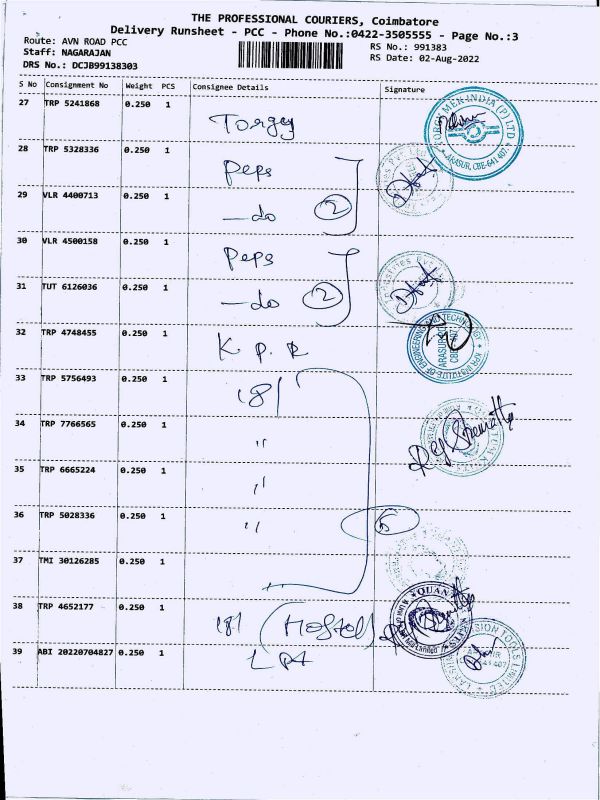 THE PROFESSIONAL COURIERS, Coimbatore
Delivery Runsheet - PCC - Phone No.:0422-3505555 - Page No.:3
Route: AVN ROAD PCC
Staff: NAGARAJAN
DRS No.: DCJB99138303
RS No.: 991383
RS Date: 02-Aug-2022
S No Consignment No Weight PCS Consignee Details Signature
27 TRP 5241868 0.250 1
28 TRP 5328336 0.250 1 Peps
29 VLR 4400713 0.250 1 —do 2
30 VLR 4500158 0.250 1 Peps
31 TUT 6126036 0.250 1 —do 2
32 TRP 4748455 0.250 1 K P R
33 TRP 5756493 0.250 1 181
34 TRP 7766565 0.250 1 "
35 TRP 6665224 0.250 1 "
36 TRP 5028336 0.250 1 "
37 TMI 30126285 0.250 1 "
38 TRP 4652177 0.250 1 181 (Hostol)
39 ABI 20220704827 0.250 1
INDIA (P) LTD
ARASUR, CBE-641 407.
KPR INSTITUTE OF ENGINEERING AND TECHNOLOGY
ARASUR
QUAN
TOOLS LIMITED